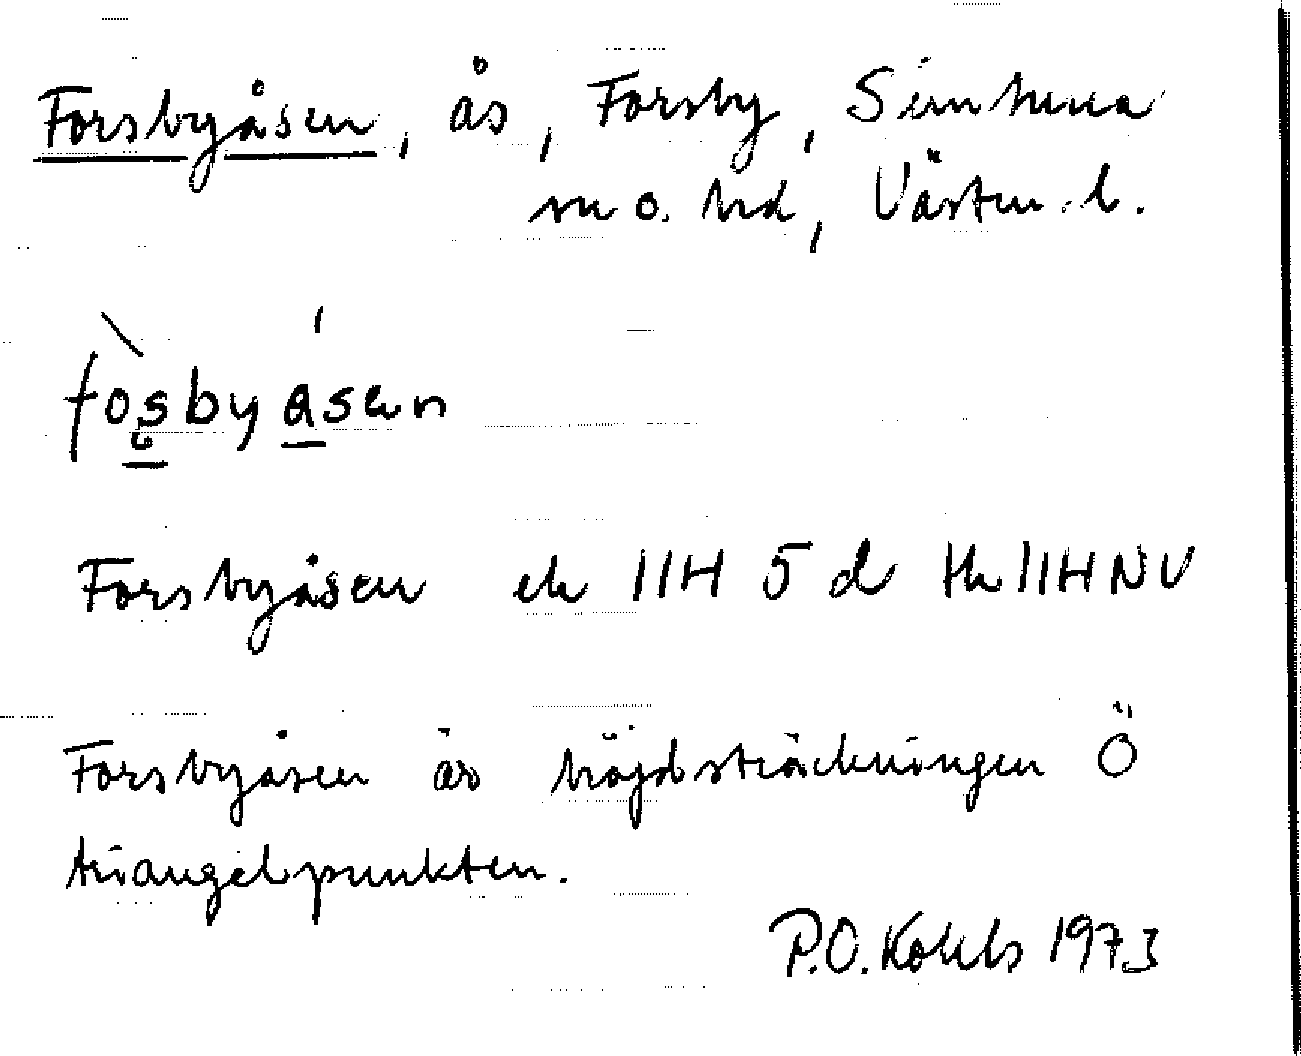 Forsbyåsen, ås, Forsby, Simtuna
sn o. hd, Västm. l.
Forsbyåsen ek 11H 5 d Hk 11H NV
Forsbyåsen är höjdsträckningen Ö
triangelpunkten.
P.O. 1973